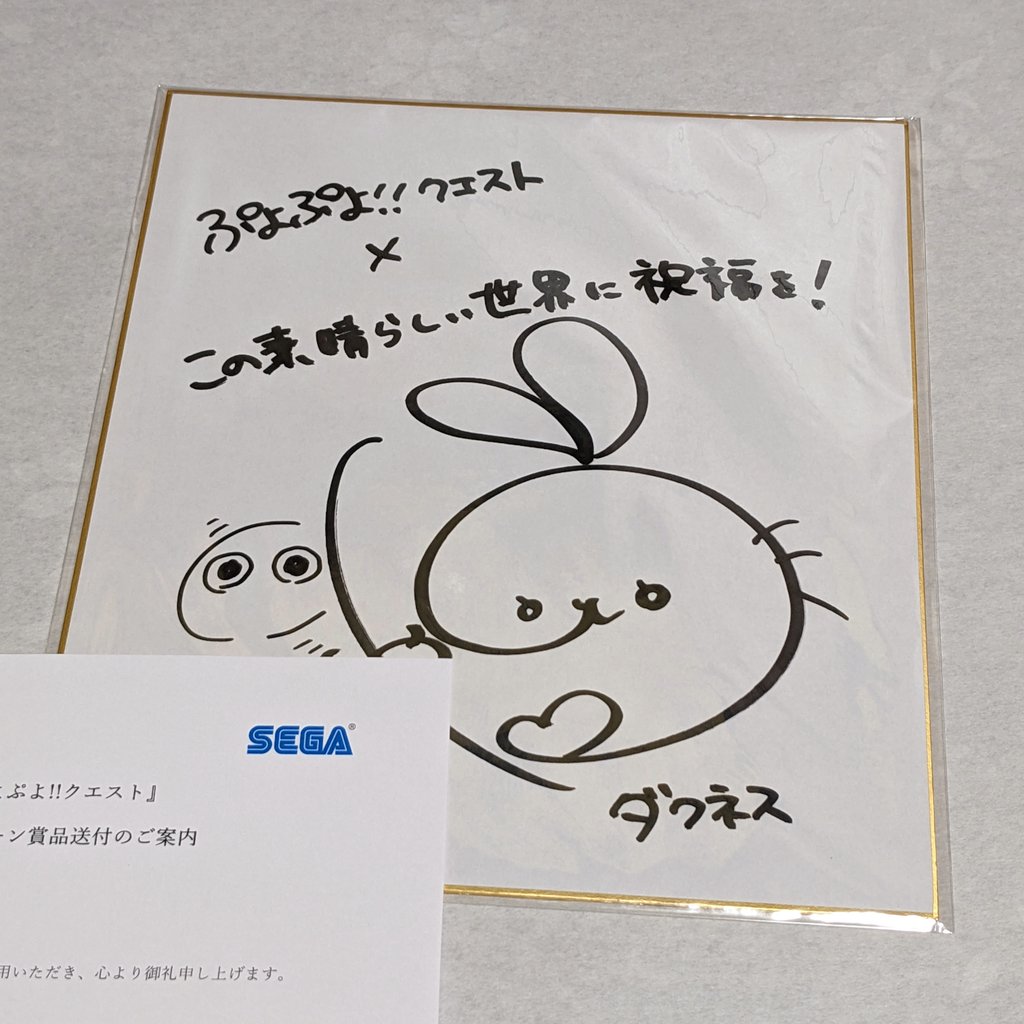 ぷよぷよ!!クエスト
×
この素晴らしい世界に祝福を!
ダクネス
SEGA®
ぷよ!!クエスト』
ン賞品送付のご案内
用いただき、心より御礼申し上げます。